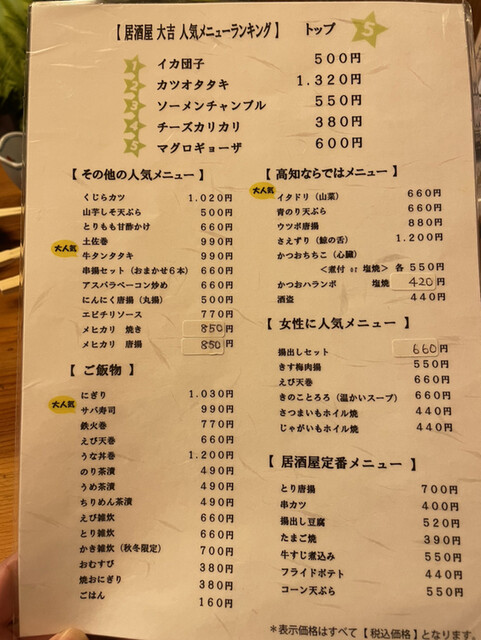 【 居酒屋 大吉 人気メニューランキング 】 トップ 5
1 イカ団子 500円
2 カツオタタキ 1.320円
3 ソーメンチャンプル 550円
4 チーズカリカリ 380円
5 マグロギョーザ 600円
【 その他の人気メニュー 】
くじらカツ 1.020円
山芋しそ天ぷら 500円
とりもも甘酢かけ 660円
土佐巻 990円
大人気 牛タンタタキ 990円
串揚セット（おまかせ6本） 660円
アスパラベーコン炒め 660円
にんにく唐揚（丸揚） 500円
エビチリソース 770円
メヒカリ 焼き 850円
メヒカリ 唐揚 850円
【 ご飯物 】
にぎり 1.030円
大人気 サバ寿司 990円
鉄火巻 770円
えび天巻 660円
うな丼巻 1.200円
のり茶漬 490円
うめ茶漬 490円
ちりめん茶漬 490円
えび雑炊 660円
とり雑炊 660円
かき雑炊（秋冬限定） 700円
おむすび 380円
焼おにぎり 380円
ごはん 160円
【 高知ならではメニュー 】
大人気 イタドリ（山菜） 660円
青のり天ぷら 660円
ウツボ唐揚 880円
さえずり（鯨の舌） 1.200円
かつおちちこ（心臓）
＜煮付 or 塩焼＞ 各 550円
かつおハランボ 塩焼 420円
酒盗 440円
【 女性に人気メニュー 】
揚出しセット 660円
きす梅肉揚 550円
えび天巻 660円
きのことろろ（温かいスープ） 660円
さつまいもホイル焼 440円
じゃがいもホイル焼 440円
【 居酒屋定番メニュー 】
とり唐揚 700円
串カツ 400円
揚出し豆腐 520円
たまご焼 390円
牛すじ煮込み 550円
フライドポテト 440円
コーン天ぷら 550円
＊表示価格はすべて【 税込価格 】となります。